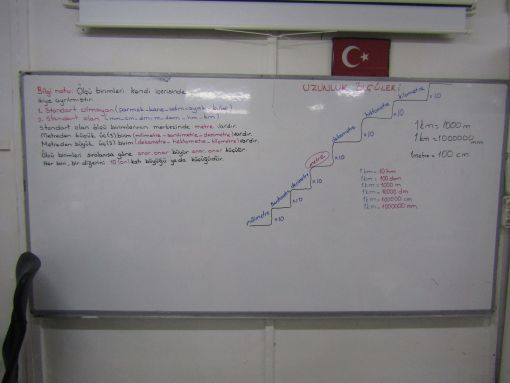 Bilgi notu: Ölçü birimleri kendi içerisinde
ikiye ayrılmıştır.
1. Standart olmayan (parmak-karış-adım-ayak-kulaç)
2. Standart olan (mm-cm-dm-m-dam-hm-km)
Standart olan ölçü birimlerinin merkezinde metre vardır.
Metreden küçük üç (3) birim (milimetre-santimetre-desimetre) vardır.
Metreden büyük üç (3) birim (dekametre-hektometre-kilometre) vardır.
Ölçü birimleri arasında göre onar onar büyür onar onar küçülür.
Her biri, bir diğerini 10 (on) katı büyüğü ya da küçüğüdür.
UZUNLUK ÖLÇÜLERİ
kilometre
x10
hektometre
x10
dekametre
x10
metre
x10
desimetre
x10
santimetre
x10
milimetre
1km = 1000 m
1km = 1000000
1metre = 100 cm
1km = 10 hm
1km = 100 dam
1km = 1000 m
1km = 10000 dm
1km = 100000 cm
1km = 1000000 mm